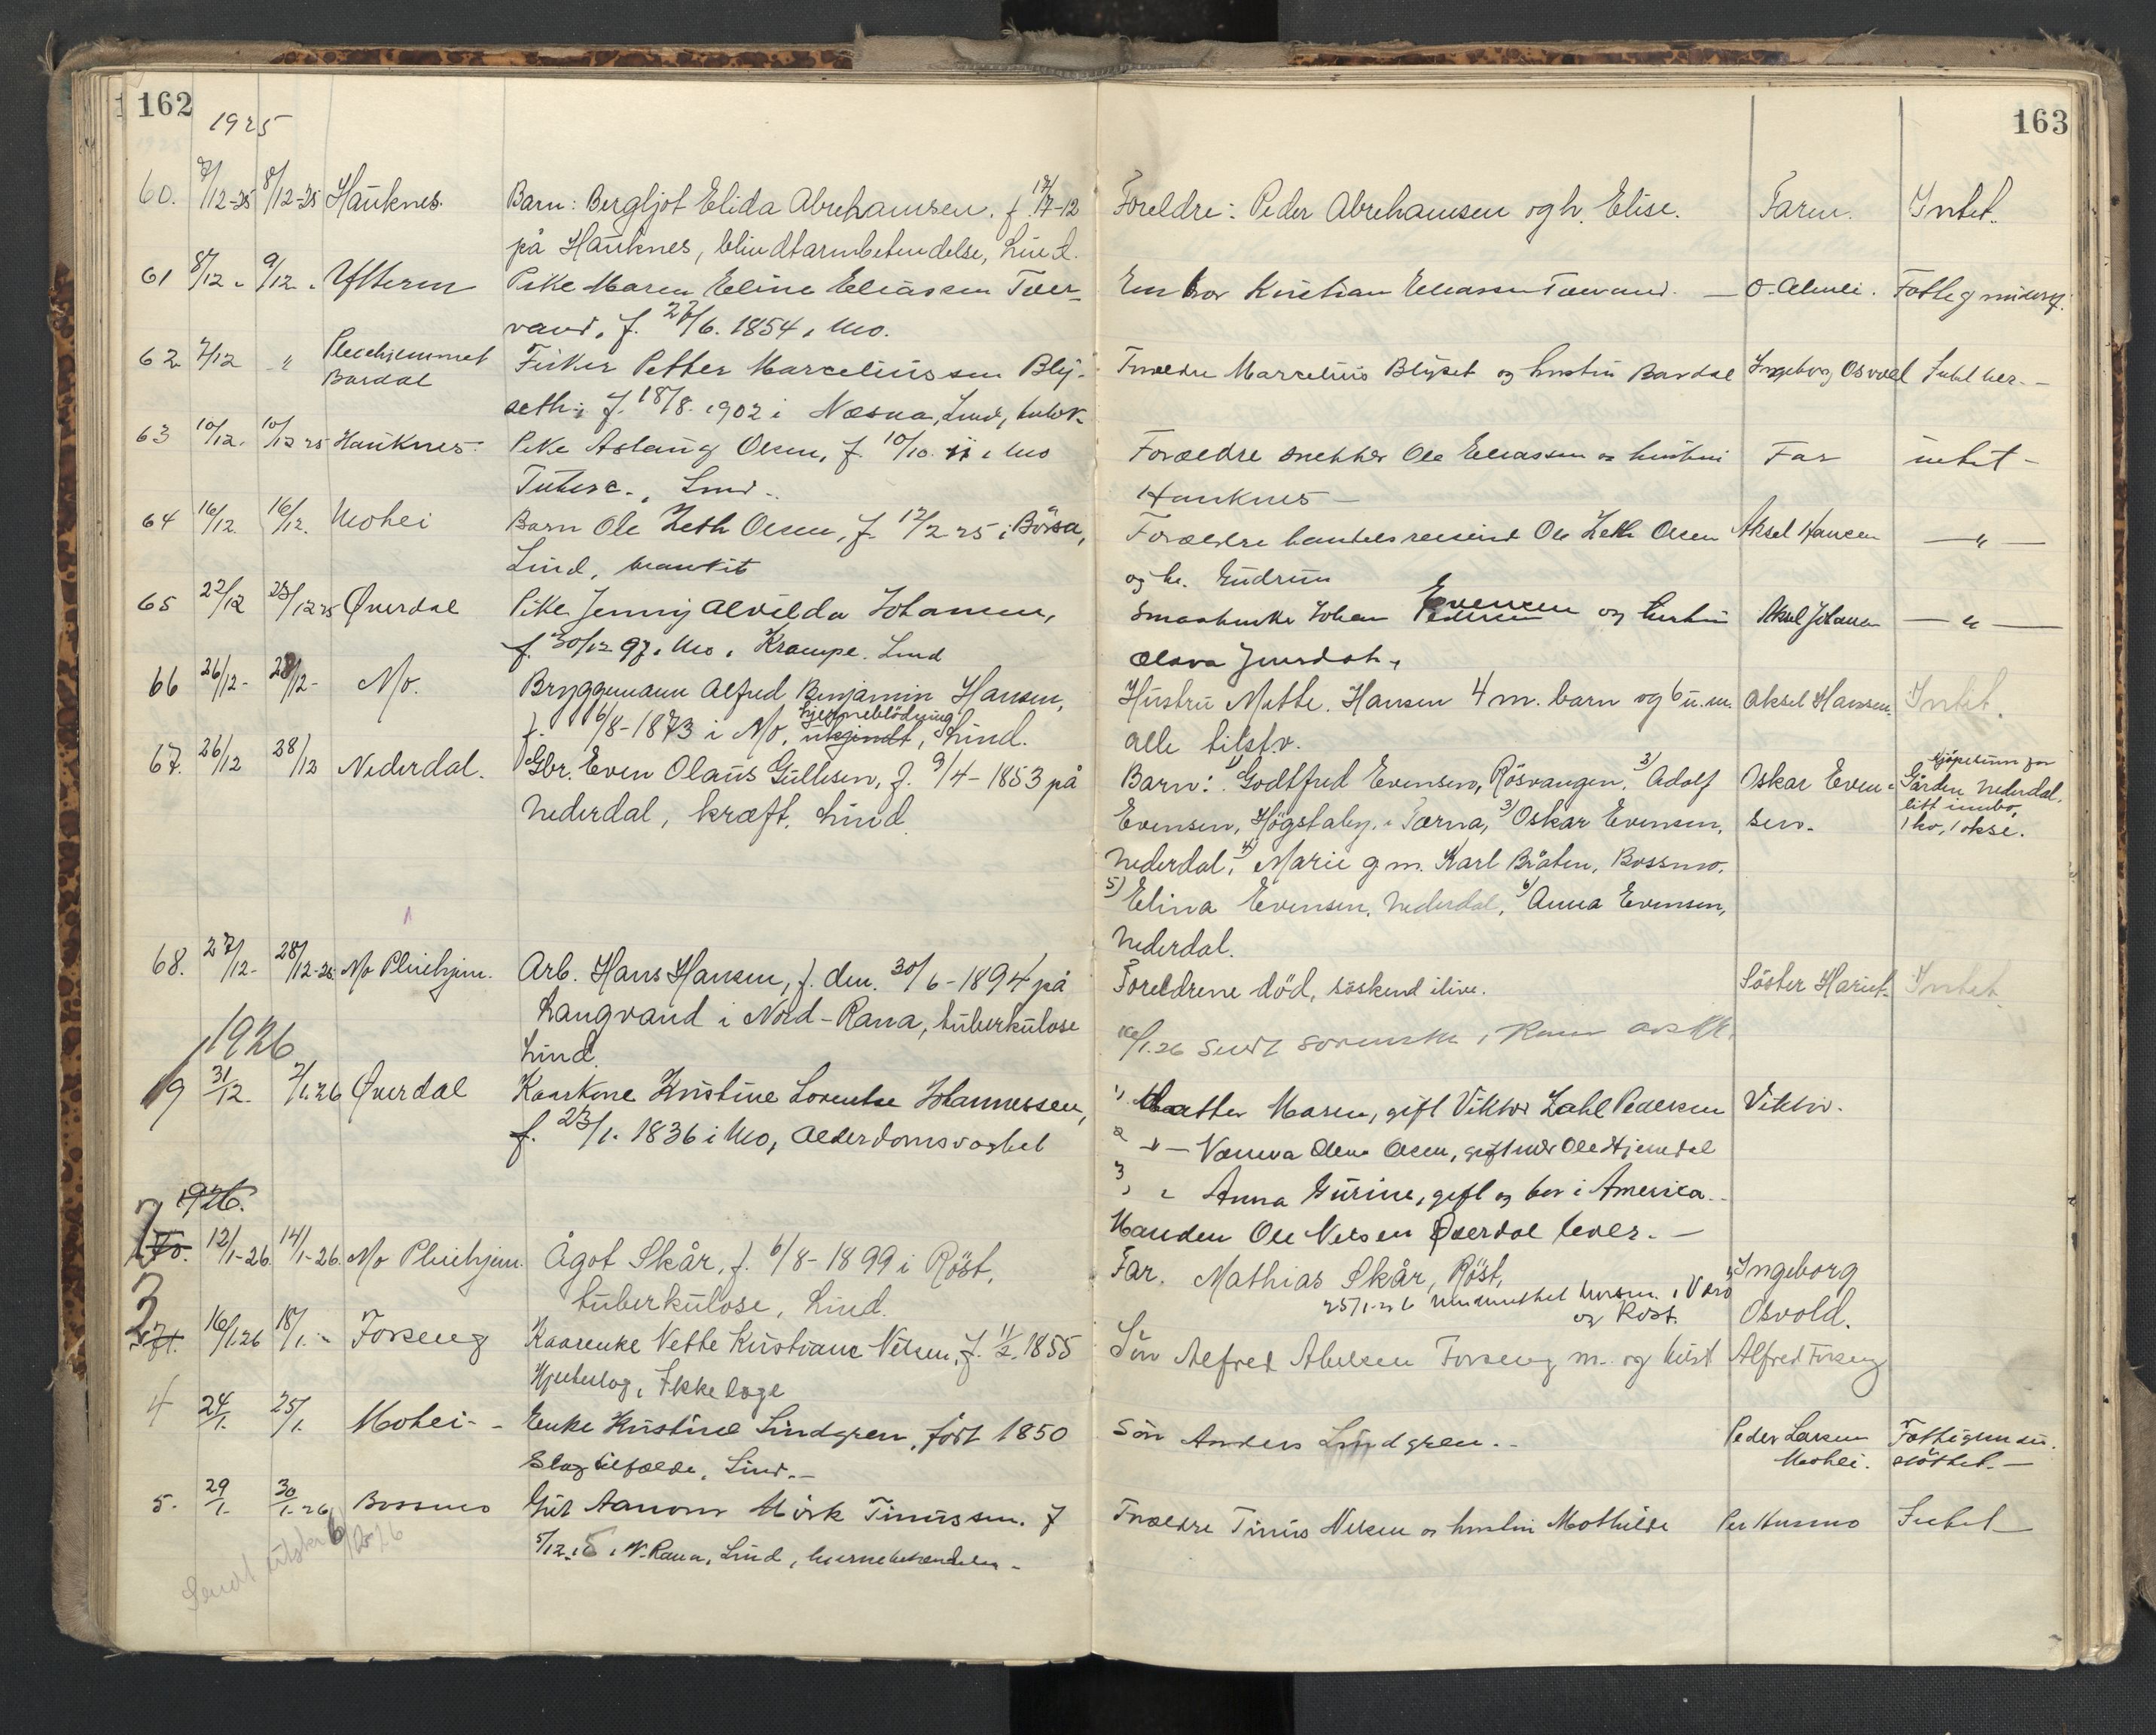 162
163
1925
60. 7/12-25 8/12-25 Hauknes. Barn: Bergljot Elida Abrehamsen. f. 17/7-12 Foreldre: Peder Abrehamsen og h. Elise. Faren. Intet.
på Hauknes, blindtarmbetendelse, Lind.
61 8/12 9/12 Ytteren Pike Maren Eline Eliassen Tver- En bror Kristian Eliassen
vand, f. 27/6. 1854 i Mo.
62 7/12 " Pleiehjemmet Fisker Petter Marcelius sen Bly- Foreldre Marcelius Blyset og hustru Bardal Ingeborg Osvold
Bardal seth, f. 18/8. 1902 i Nesna, Lind, tuberk.
63 10/12. 10/12 25 Hauknes. Pike Aslaug Olsen, f. 10/10. 11 i Mo Forældre snekker Ole Eliassen og hustru Far intet -
Tuberc., Lind. Hauknes -
64 16/12. 16/12. Mohei Barn Ole Zeth Olsen, f. 12/2 25 i Børsa, Forældre handelsreisende Ole Zeth Olsen Aksel Hansen - " -
Lind, bronkit og h. Gudrun
65 22/12 23/12 25 Øverdal Pike Jenny Alvilda Johansen, Smaabruker Johan Evensen og hustru Aksel Johansen - " -
f. 30/12 97. Mo. Krampe. Lind Olava
66 26/12- 28/12- Mo. Bryggemann Alfred Benjamin Hansen, Hustru Mette. Hansen 4 m. barn og 6 u.m. Aksel Hansen. Intet.
f. 6/8-1873 i Mo, ukjendt, hjerneblødning Lind. alle tilstv.
67. 26/12 28/12 Nederdal. Gbr. Even Olaus Gullesen, f. 9/4-1853 på Barn: 1) Godtfred Evensen, Røsvangen, 2) Adolf Oskar Even- Gården Nederdal,
Nederdal, kræft. Lind. Evensen, Høgstaby, i Tærna, 3) Oskar Evensen, sen. litt innbo,
1 ko, 1 okse.
Nederdal, 4) Marie g.m. Karl Bråten, Bossmo.
5) Elina Evensen, Nederdal, 6) Anna Evensen,
Nederdal.
68. 27/12- 28/12-25 Mo Pleiehjem. Arb. Hans Hansen, f. den 30/6-1894 på Foreldrene død, søskend ilive. Søster Hariet. Intet.
Langvand i Nord-Rana, tuberkulose
Lind.
1926
31/12. 2/1.26 Øverdal Kaarkone Kristine Lorentse Johannessen, 1) Datter Maren, gift Viktor Zahl Pedersen Viktor.
f. 23/1. 1836 i Mo, Alderdomsvakhet 2 - " - Olsen, gift med Ole Hjemdal
3) " Anna Gurine, gift og bor i America.
1926. Manden Ole Nelsen Øverdal lever. -
70. 12/1-26 14/1-26. Mo Pleiehjem. Ågot Skår, f. 6/8-1899 i Røst, Far. Mathias Skår, Røst, Ingeborg
tuberkulose, Lind. og Røst. Osvold.
3 71. 16/1.26 18/1. Forseng Kaarenke Nette Kristiane Nilsen, f. 11/2. 1855 Søn Alfred Forseng Alfred Forseng
Hjerteslag, Ikke læge
4 24/1. 25/1. Mohei - Enke Kristine Lindgren, født 1850 Søn Anders Lindgren. - Peder Larsen
Slagtilfælde, Lind. - Mohei.
5. 29/1. 30/1.26 Bossmo Gut Aanon Mørk Tinussen. f Forældre Tinus Nilsen og hustru Mathilde Intet -
5/12. i N. Rana, Lind,